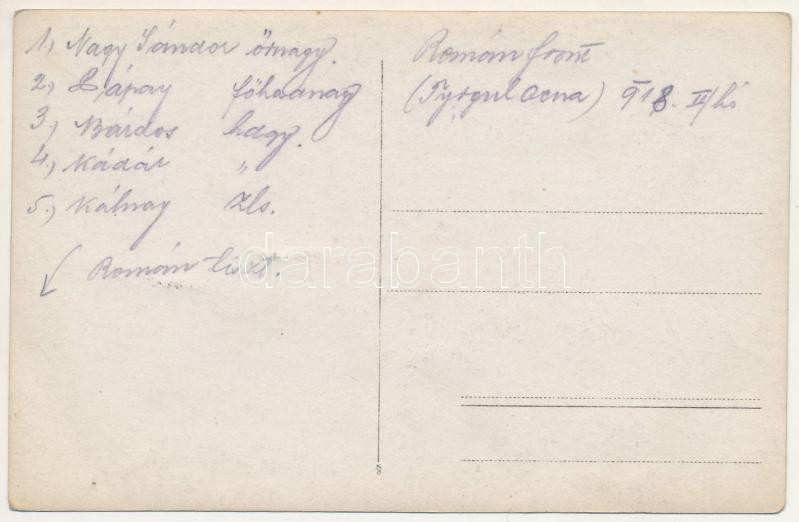 1., Nagy Sándor őrnagy.
2., Lápay főhadnagy
3., Bárdos hdgy.
4., Kádár "
5., Kálnay zls.
Román tiszt.
Román front
(Tyrgul Ocna) 918. II/hó
darabanth